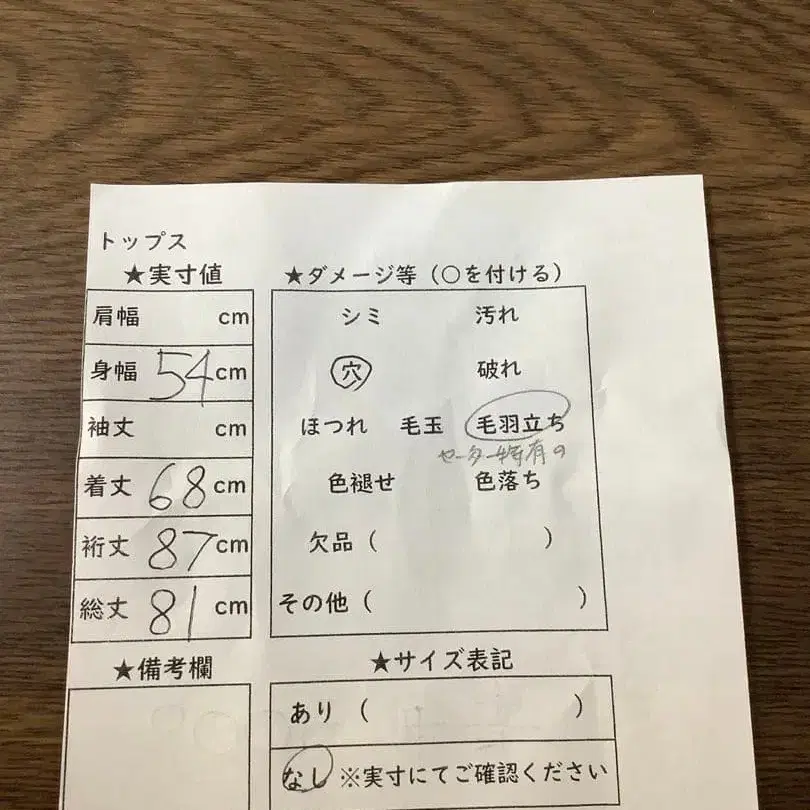 トップス
★実寸値
肩幅 cm
身幅 54 cm
袖丈 cm
着丈 68 cm
裄丈 87 cm
総丈 81 cm
★備考欄
★ダメージ等（○を付ける）
シミ 汚れ
穴 破れ
ほつれ 毛玉 毛羽立ち
セーター特有の
色褪せ 色落ち
欠品（ ）
その他（ ）
★サイズ表記
あり（ ）
なし ※実寸にてご確認ください